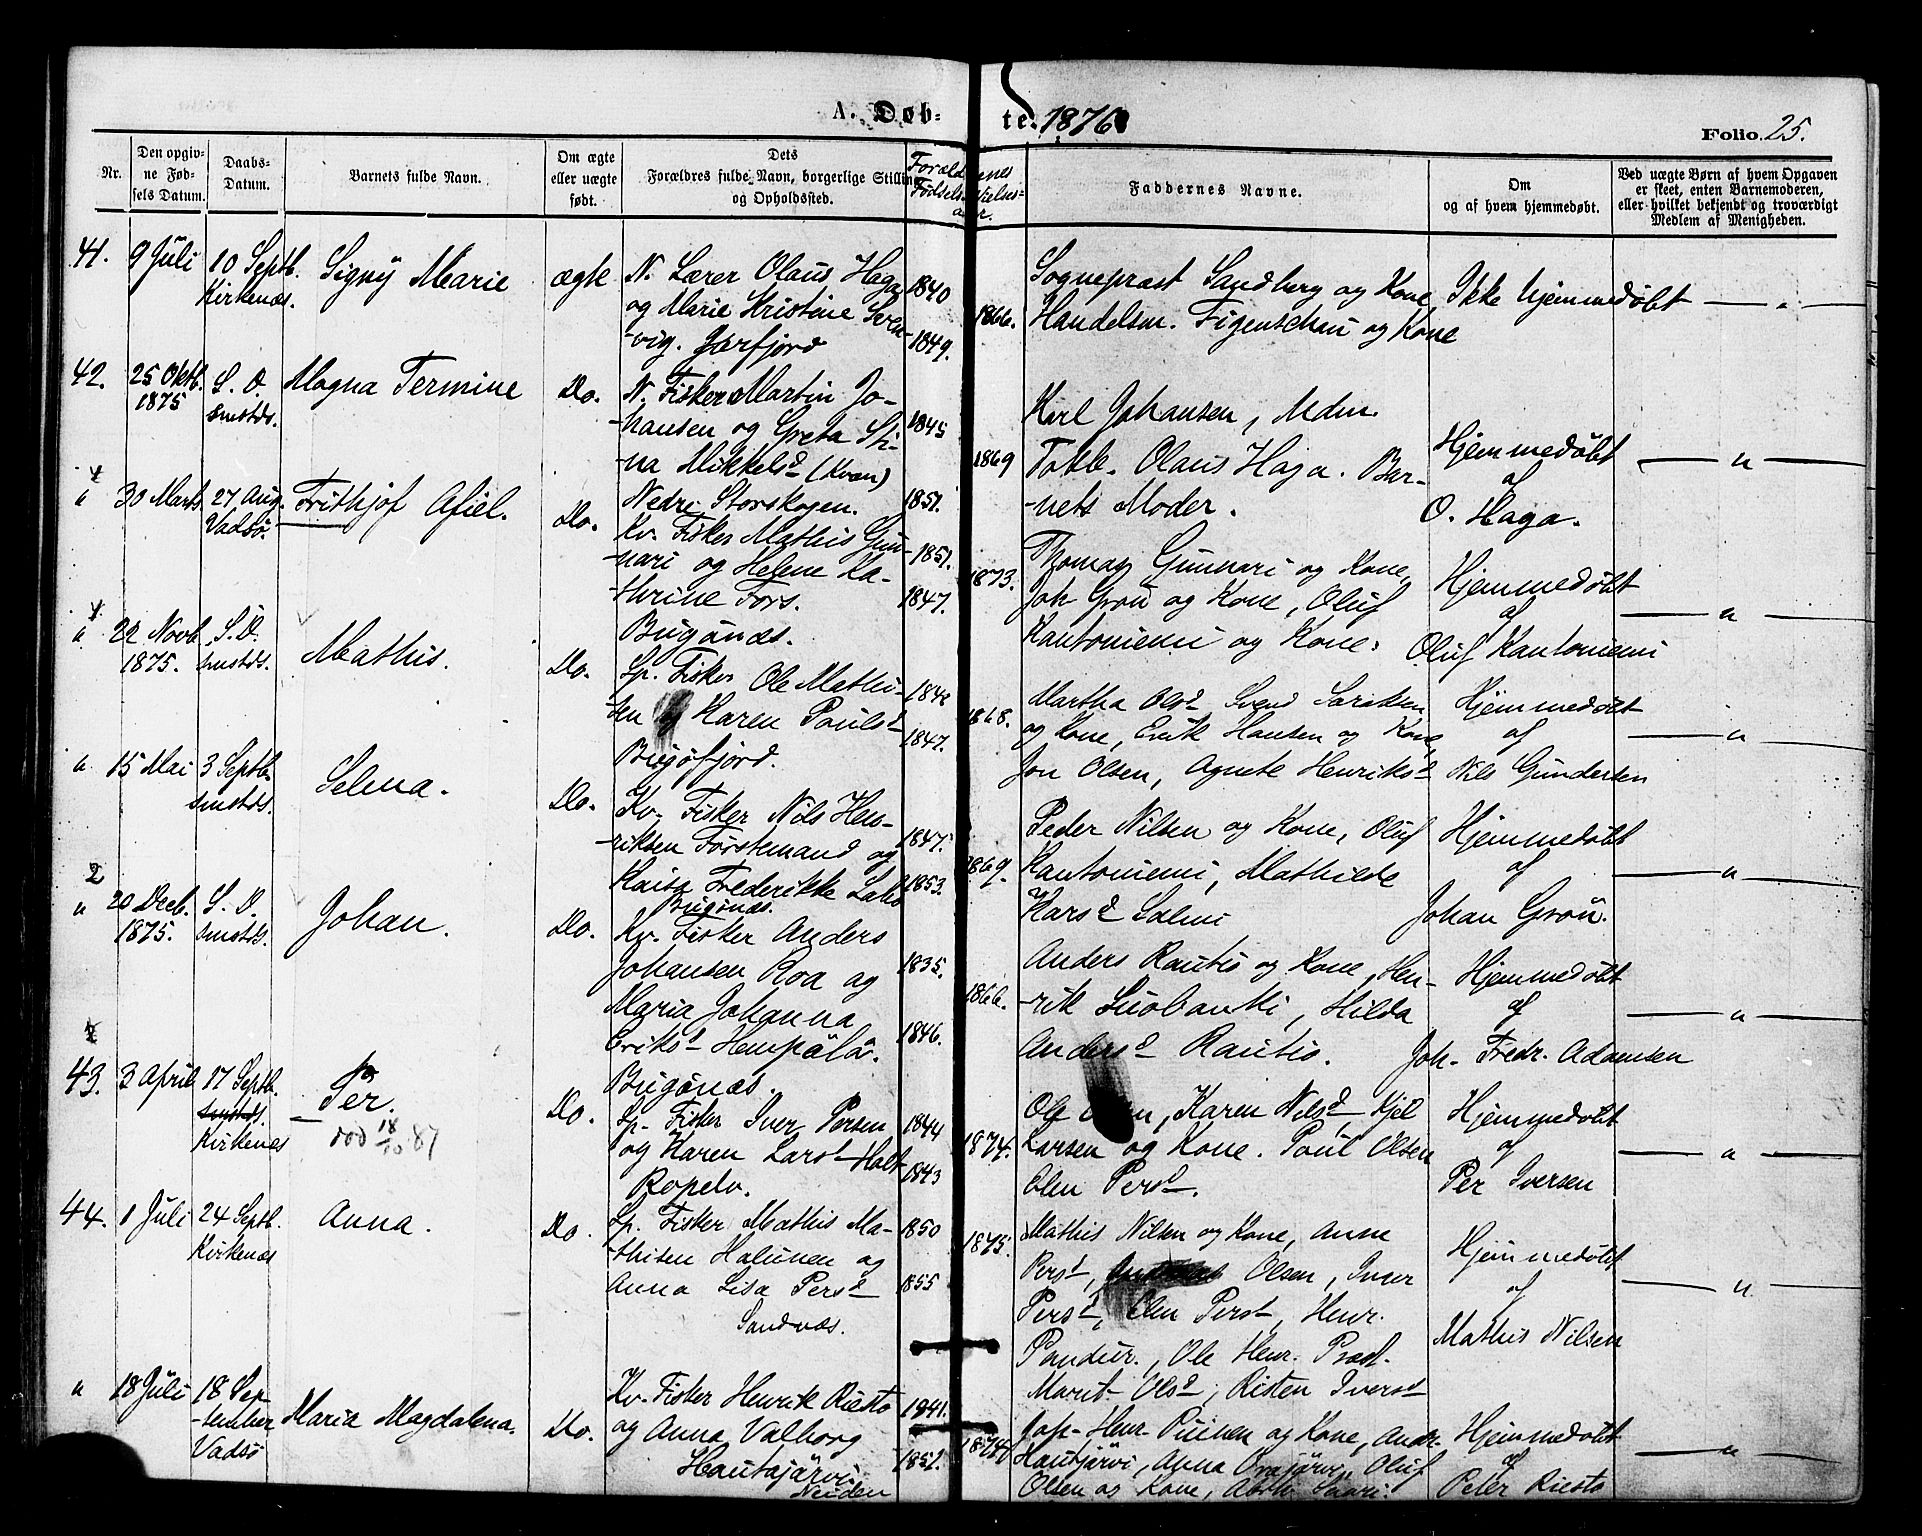 A. Døb-
te. 1876
Folio. 25.
Nr.
Den opgiv-
ne Fød-
sels Datum.
Daabs-
Datum.
Barnets fulde Navn.
Om ægte
eller uægte
født.
Dets
Forældres fulde Navn, borgerlige Stilling
og Opholdssted.
Forældrenes
Fødsels- Vielses-
aar.
Faddernes Navne.
Om
og af hvem hjemmedøbt.
Ved uægte Børn af hvem Opgaven
er skeet, enten Barnemoderen,
eller hvilket bekjendt og troværdigt
Medlem af Menigheden.
41.
9 Juli
10 Septb.
Kirkenæs.
Signÿ Marie
ægte
N. Lærer Olaus Haga
og Marie Kristine Sven-
vig. Jarfjord
1840
1849.
1866.
Sogneprest Sandberg og Kone
Handelsm. Figenschau og Kone
Ikke hjemmedøbt
— " —
42.
25 Oktb.
1875
S. D.
smstds.
Magna Termine
Do.
N. Fisker Martin Jo-
hansen og Greta Sti-
na Mikkelsd (Kvæn)
Nedre Storskogen.
1845
1851.
1869
Karl Johansen, Mdm.
Tobb. Olaus Haga. Bar-
nets Moder.
Hjemmedøbt
af
O. Haga.
— " —
"
30 Marts
27 Aug.
Vadsö.
Frithjof Afiel.
Do.
Kv. Fisker Mathis Gun-
nari og Helene Ka-
thrine Fors.
Bugönæs.
1851.
1847.
1873.
Thomas Gunnari og Kone,
Joh Grön og Kone, Oluf
Kantoniemi og Kone.
Hjemmedøbt
af
Oluf Kantoniemi
— " —
"
22 Novb.
1875.
S. D.
smstds.
Mathis.
Do.
Lp. Fisker Ole Mathi-
sen og Karen Poulsd
Bugöfjord.
1847.
1868.
Martha Olsd Svend Saraksen
og Kone, Erik Hansen og Kone
Jon Olsen, Agnete Henriksd
Hjemmedøbt
af
Nils Gundersen
— " —
"
15 Mai
3 Septb.
smstds.
Selma.
Do.
Kv. Fisker Nils Hen-
riksen Förstemand og
Kaisa Frederikke Lako
Bugönæs.
1847.
1853.
1869.
Peder Nilsen og Kone, Oluf
Kantoniemi, Mathilde
Karsd Salmi
Hjemmedøbt
af
Johan Grön.
— " —
2
"
20 Decb.
1875.
S. D.
smstds.
Johan.
Do.
Kv. Fisker Anders
Johansen Roa og
Maria Johanna
Eriksd Hempälä.
Bugönæs.
1835.
1846.
1866.
Anders Rautio og Kone, Hen-
rik Suobanki, Hilda
Andersd Rautio.
Hjemmedøbt
af
Joh. Fredr. Adamsen
— " —
43.
3 April
17 Septb.
smstds.
Kirkenæs
Per.
död 18/10 87
Do.
Lp. Fisker Iver Persen
og Karen Larsd Holt
Ropelv.
1844
1843
1874.
Ole, Karen Nilsd, Kjel
Larsen og Kone. Poul Olsen
Elen Persd.
Hjemmedøbt
af
Per Iversen
— " —
44.
1 Juli
24 Septb.
Kirkenæs
Anna.
Do.
Lp. Fisker Mathis Ma-
thisen Halunen og
Anna Lisa Persd
Sandnæs.
1850
1855
1875.
Mathis Nilsen og Kone, Anne
Persd, Olsen, Inger
Persd, Elen Persd, Henr.
Pandur., Ole Henr. Præst.
Marit Olsd, Risten Iversd
Hjemmedøbt
af
Mathis Nilsen
— " —
"
18 Juli
18 Sep-
tember
Vadsö
Maria Magdalena.
Do.
Kv. Fisker Henrik Riesto
og Anna Valborg
Hautajärvi.
Neiden
1841.
1851.
1874
Joh. Henr. Puinen og Kone, Andr.
Hautjärvi, Anna Orajärvi, Oluf
Olsen og Kone,
Hjemmedøbt
af
Peter Riesto
— " —